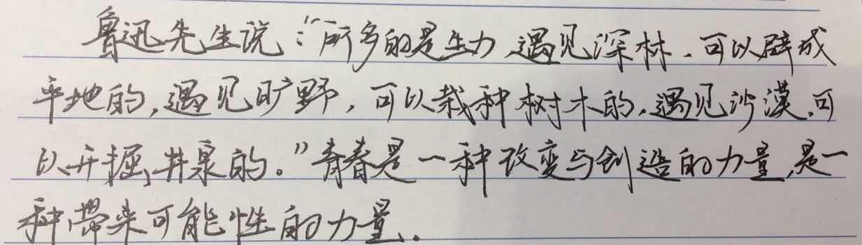 鲁迅先生说:“所多的是生力,遇见深林,可以辟成
平地的,遇见旷野,可以栽种树木的,遇见沙漠,可
以开掘井泉的。”青春是一种改变与创造的力量,是一
种带来可能性的力量.